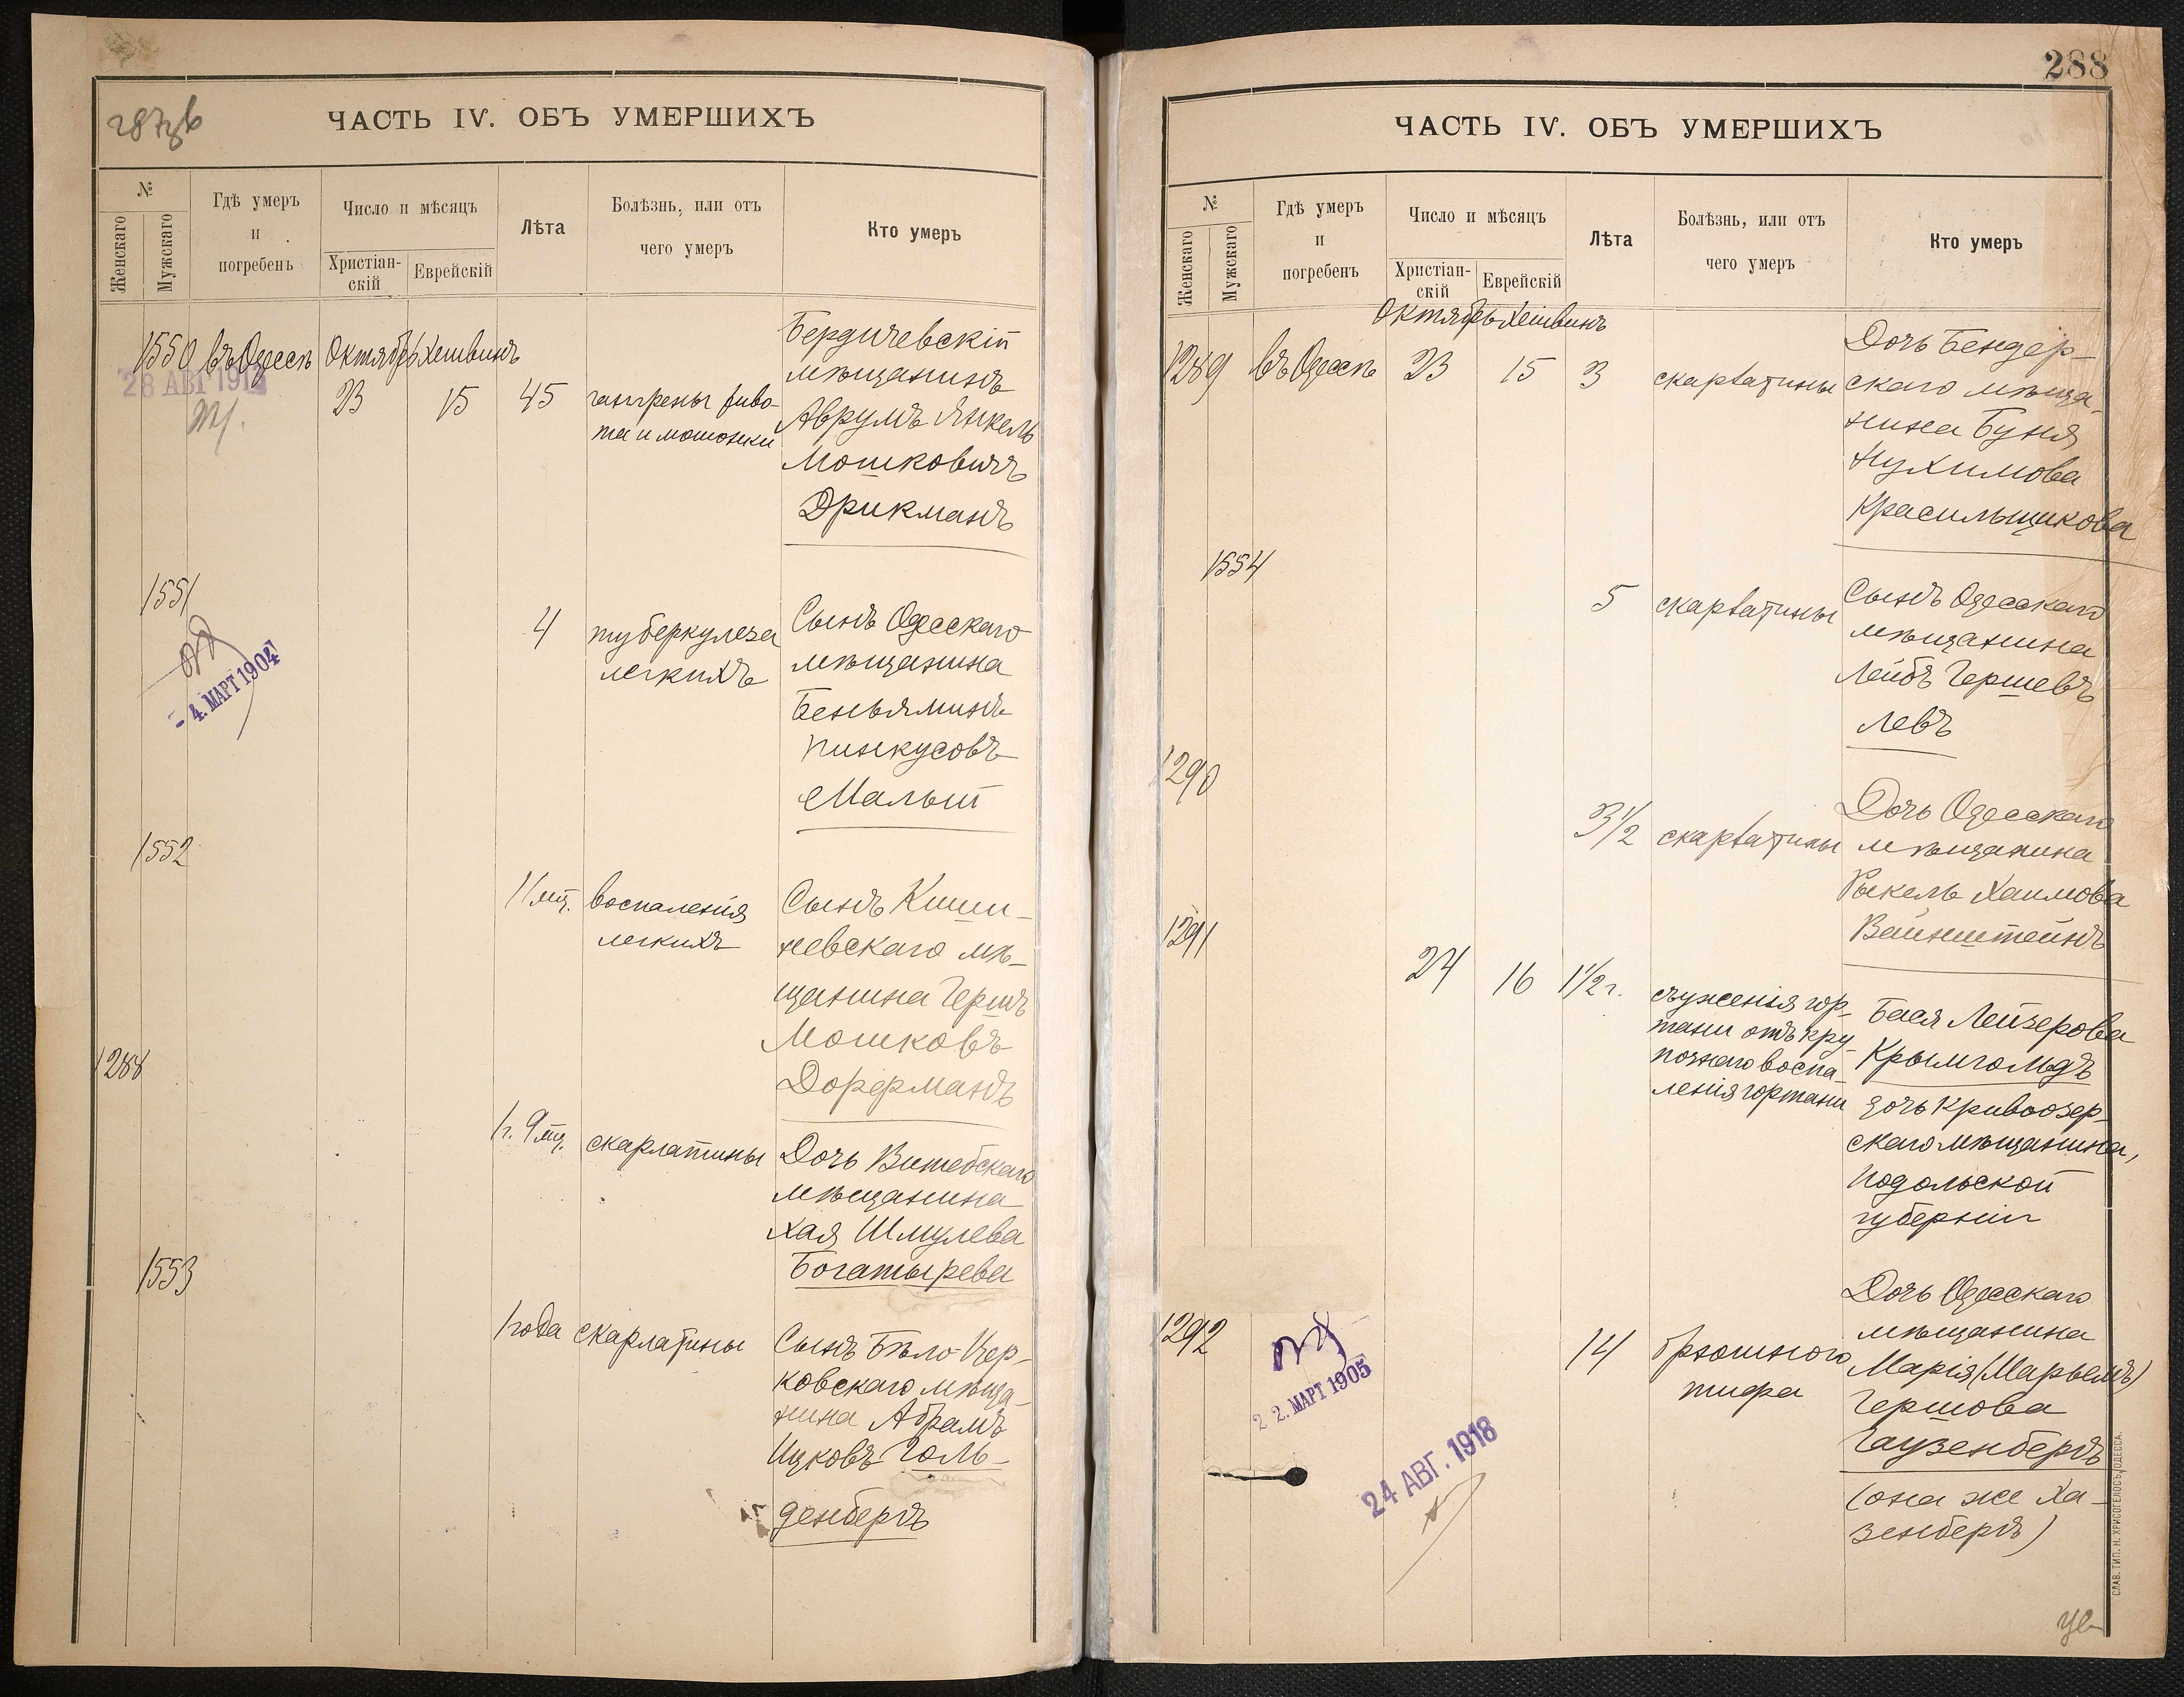 287об
ЧАСТЬ IV. ОБЪ УМЕРШИХЪ
№
Женскаго
Мужскаго
Гдѣ умеръ
и
погребенъ
Число и мѣсяцъ
Христіан-
скій
Еврейскій
Лѣта
Болѣзнь, или отъ
чего умеръ
Кто умеръ
1550
въ Одессѣ
28 АВГ 191
Октябрь
23
Хешвинъ
15
45
гангрены живо-
та и мошонки
Бердичевскій
мѣщанинъ
Аврумъ Янкель
Мошковичъ
Дрикманъ
1551
- 4. МАРТ 1904
4
туберкулеза
легкихъ
Сынъ Одесскаго
мѣщанина
Беньяминъ
Пинкусовъ
Малыш
1552
11 мц.
воспаленія
легкихъ
Сынъ Киши-
невскаго мѣ-
щанина Гершъ
Мошковъ
Дорфманъ
1288
1 г. 9 мц.
скарлатины
Дочь Витебскаго
мѣщанина
Хая Шмулева
Богатырева
1553
1 года
скарлатины
Сынъ Бѣло-Цер-
ковскаго мѣща-
нина Абрамъ
Ицковъ Голь-
денбергъ
288
ЧАСТЬ IV. ОБЪ УМЕРШИХЪ
№
Женскаго
Мужскаго
Гдѣ умеръ
и
погребенъ
Число и мѣсяцъ
Христіан-
скій
Еврейскій
Лѣта
Болѣзнь, или отъ
чего умеръ
Кто умеръ
1289
въ Одессѣ
Октябрь
23
Хешвинъ
15
3
скарлатины
Дочь Бендер-
скаго мѣща-
нина Буня
Нухимова
Красильщикова
1554
5
скарлатины
Сынъ Одесскаго
мѣщанина
Лейбъ Гершевъ
Левъ
1290
3 1/2
скарлатины
Дочь Одесскаго
мѣщанина
Рыкель Хаимова
Вайнштейнъ
1291
24
16
1 1/2 г.
съуженія гор-
тани отъ кру-
познаго воспа-
ленія гортани
Бася Лейзерова
Крымгольдъ
дочь Кривоозер-
скаго мѣщанина,
Подольской
губерніи
1292
2 2. МАРТ 1905
24 АВГ. 1918
14
брюшного
тифа
Дочь Одесскаго
мѣщанина
Марія (Марьемъ)
Гершова
Гаузенбергъ
(она же Ха-
зенбергъ)
СЛАВ. ТИП. Н. ХРИСОГЕЛОСЪ, ОДЕССА.